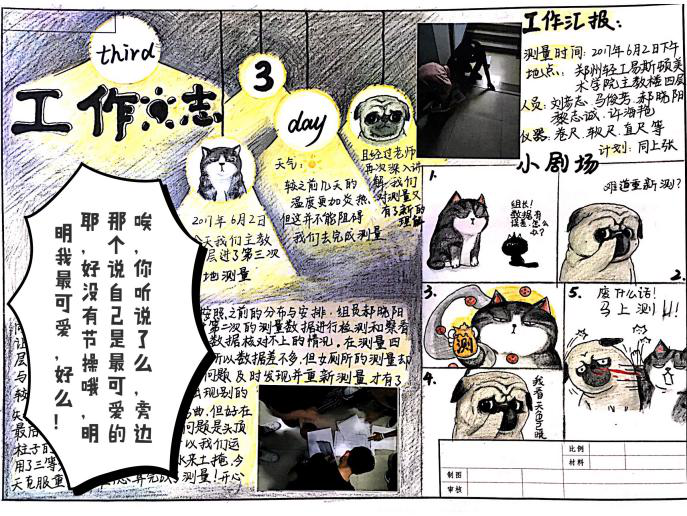 third
3
day
工作日志
天气:
较之前几天的
温度更加炎热,
但这并不能阻碍
我们去完成测量
且经过老师
再次深入讲
解,我们
对测量又
有了新的
理解
2017年6月2日
今天我们主教
层进了第三次
地测量
唉,你听说了么,旁边
那个说自己是最可爱的
耶,好没有节操哦,明
明我最可爱,好么!
按照之前的分布与安排,组员郝晓阳
第二次的测量数据进行检测和察看
数据核对不上的情况。在测量四
所以数据差不多,但女厕所的测量却
问题及时发现并重新测量才有了
出现别的
曲,但好在
问题是头顶
以我们运
水来土掩,今
测量!开心
让
层与
较
最后
柱子的
用了三等
天克服重
工作汇报:
测量时间:2017年6月2日下午
地点:郑州轻工易斯顿美
术学院主教楼四层
人员:刘孝志 马俊芳 郝晓阳
黎志诚、许海艳
仪器:卷尺、软尺、直尺等
计划:同上张
小剧场
1.
组长!
数据有
误差,怎么
办?
难道重新测?
2.
3.
测
4.
我看天色已晚
5.
废什么话!
马上测!!!
比例
材料
制图
审核